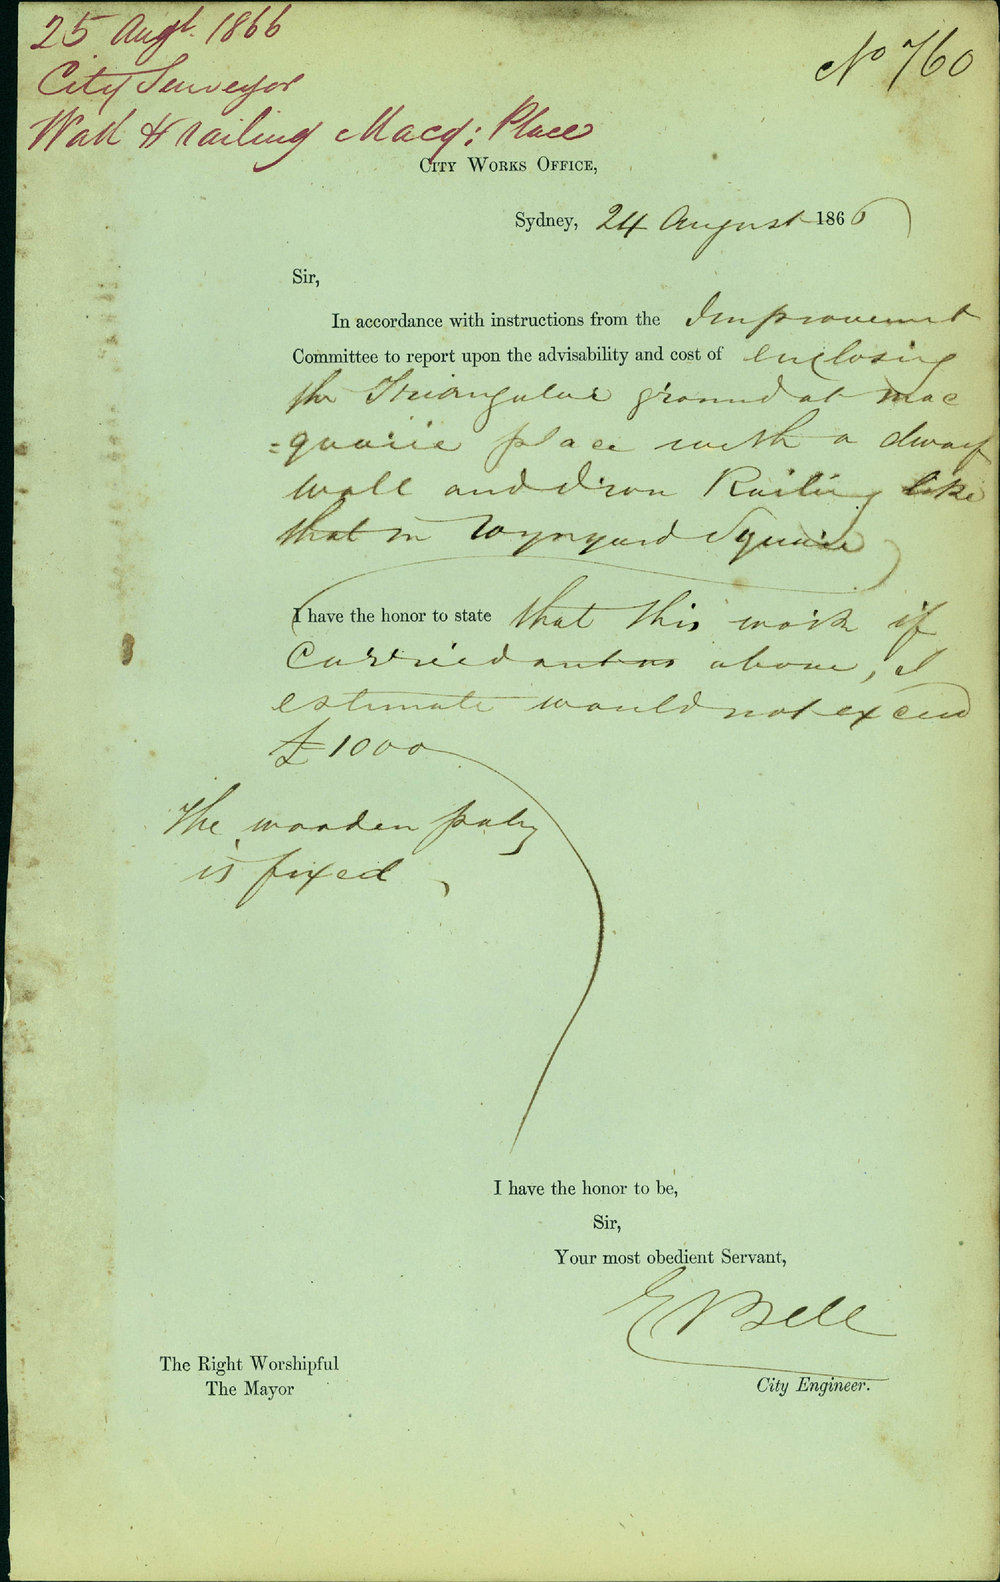 25 Augt. 1866
No 760
City Surveyor
Wall & railing Macq: Place
City Works Office,
Sydney, 24 August 1866
Sir,
In accordance with instructions from the Improvement
Committee to report upon the advisability and cost of enclosing
the Triangular ground at Mac
=quarie place with a dwarf
wall and Iron Railing like
that in Wynyard Square
I have the honor to state that this work if
Carried out as above, I
estimate would not exceed
£1000
The wooden paling
is fixed
I have the honor to be,
Sir,
Your most obedient Servant,
E Bell
The Right Worshipful
The Mayor
City Engineer.